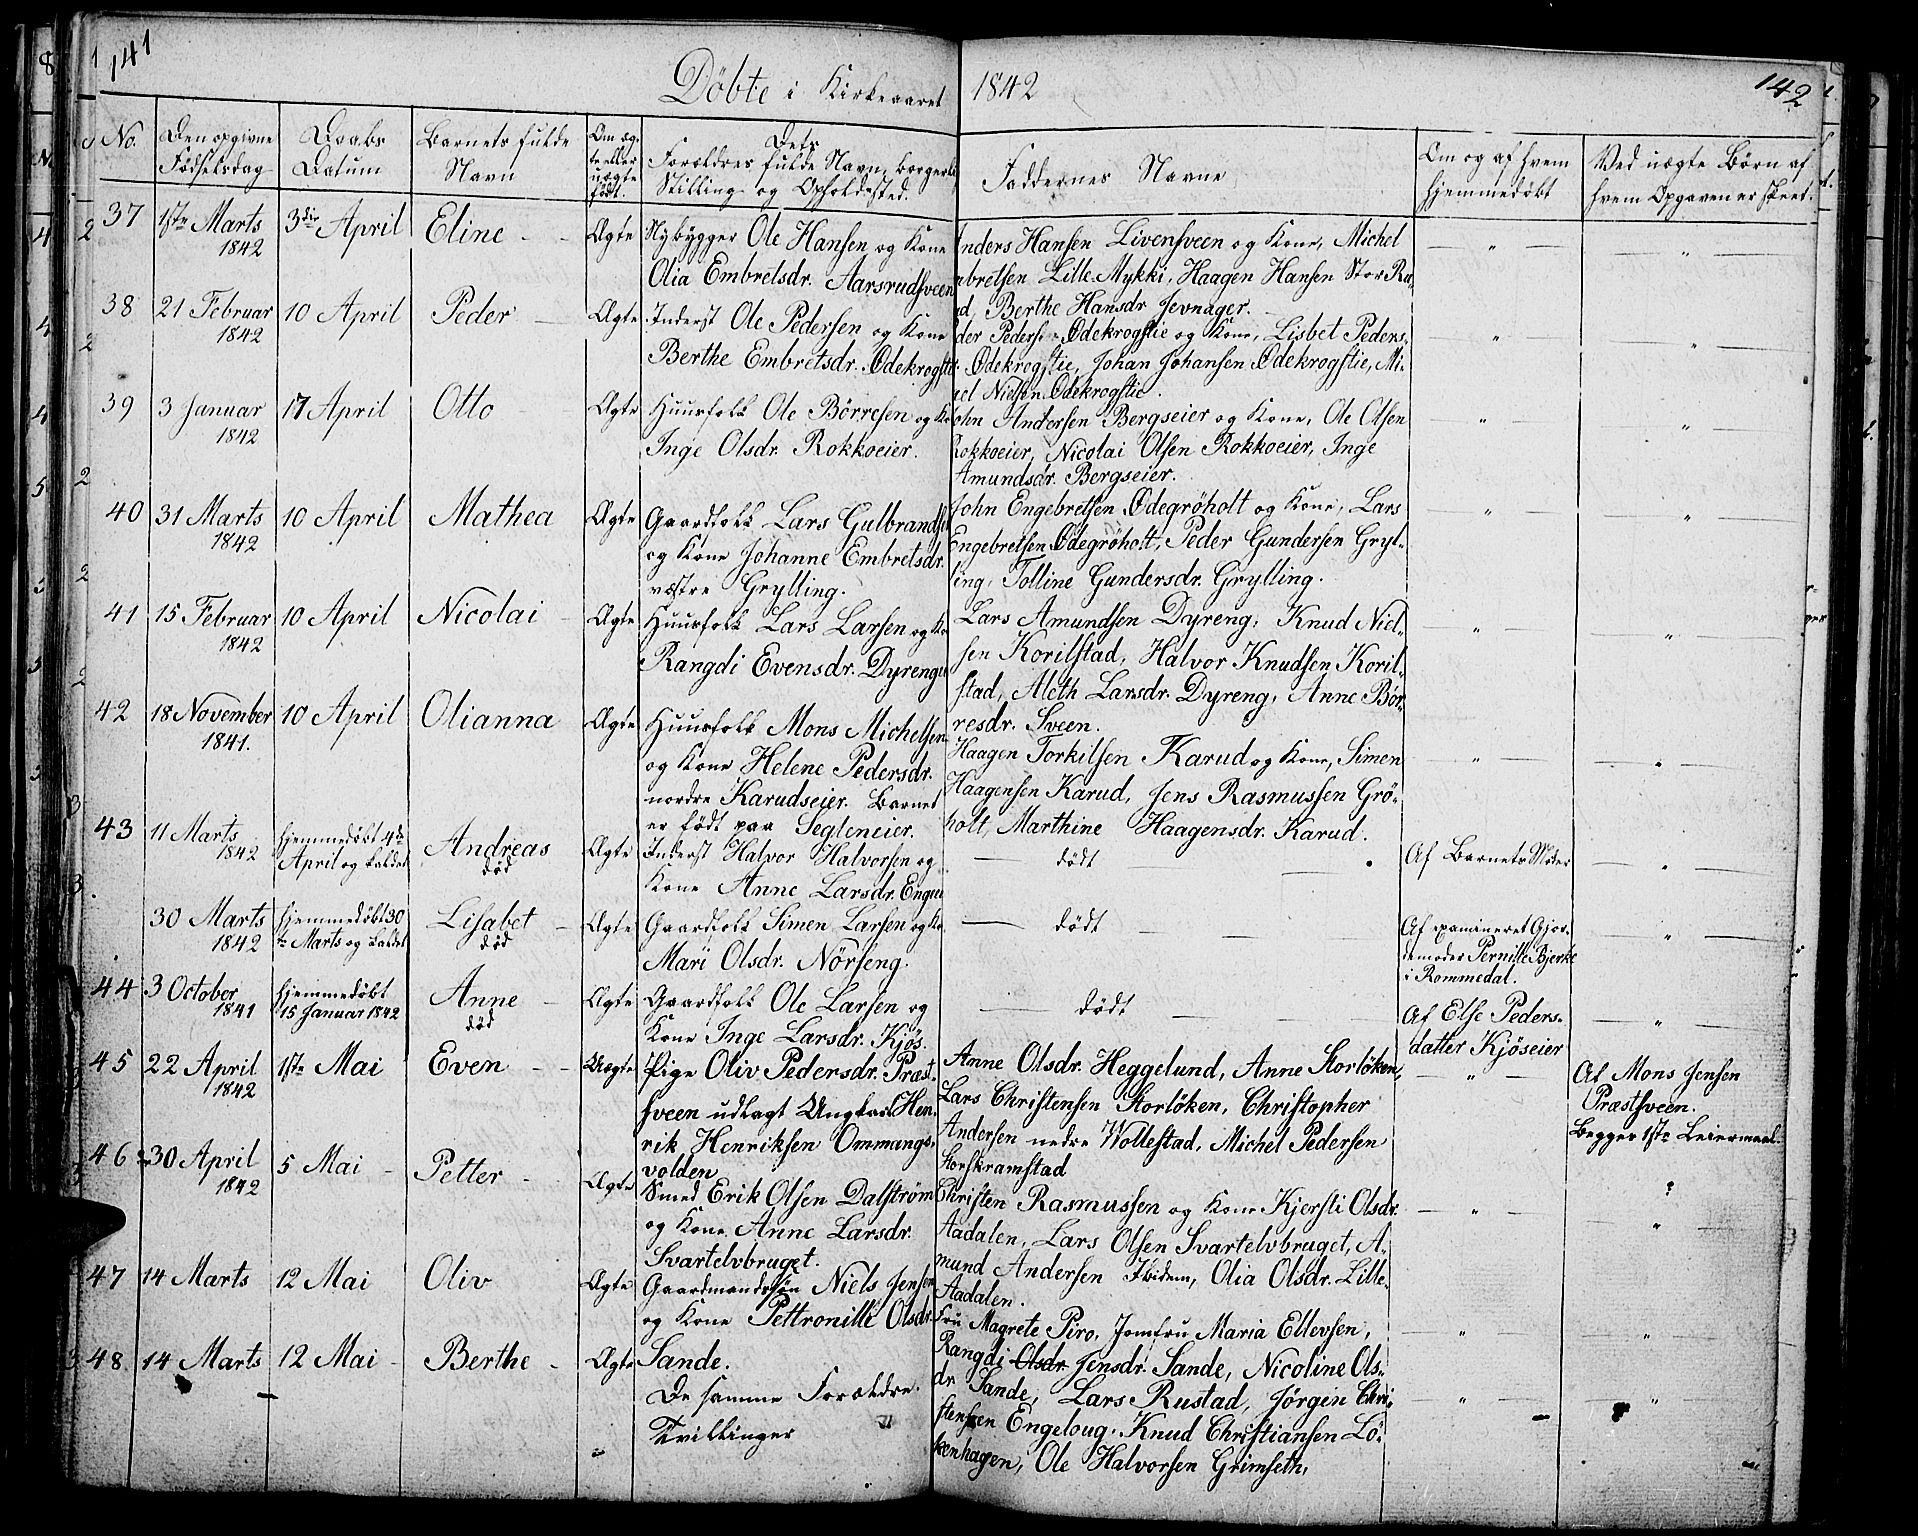 141
Döbte i Kirkeaaret 1842
142
No.
Den opgivne Födselsdag
Daabs Datum
Barnets fulde Navn
Om ægte eller uægte födt.
Dets Forældres fulde Navn, borgerl. Stilling og Opholdssted.
Faddernes Navne
Om og af hvem hjemmedöbt
Ved uægte Börn af hvem Opgaven er skeet.
37 1ste Marts 1842 3die April Eline Ægte
Nybygger Ole Hansen og Kone
Olia Embretsdr. Aarsrudsveen
Anders Hansen Livensveen og Kone, Michel
Embretsen Lille Mykki, Haagen Hansen Stor Ru-
ud, Berthe Hansdr Jevnager.
38 21 Februar 1842 10 April Peder Ægte
Inderst Ole Pedersen og Kone
Berthe Embretsdr. Ödekrogstie
Peder Pedersen Ödekrogstie og Kone, Lisbet Peders-
dr. Ödekrogstie, Johan Johansen Ödekrogstie, Mi-
chel Nielsen Ödekrogstie.
39 3 Januar 1842 17 April Otto Ægte
Huusfolk Ole Börresen og Ko
Inge Olsdr. Rokkoeier.
John Andersen Bergseier og Kone, Ole Olsen
Rokkoeier, Nicolai Olsen Rokkoeier, Inge
Amundsdr. Bergseier.
40 31 Marts 1842 10 April Mathea Ægte
Gaardfolk Lars Gulbrandsen
og Kone Johanne Embretsdr.
vestre Grylling.
John Engebretsen Ödegröholt og Kone, Lars
Engebretsen Ödegröholt, Peder Gundersen Gryl-
ling, Tolline Gundersdr. Grylling.
41 15 Februar 1842 10 April Nicolai Ægte
Huusfolk Lars Larsen og Ko
Rangdi Evensdr. Dyrengei
Lars Amundsen Dyreng, Knud Niel-
sen Korilstad, Halvor Knudsen Koril-
stad, Aleth Larsdr. Dyreng, Anne Bör-
resdr. Sveen.
42 18 November 1841. 10 April Olianna Ægte
Huusfolk Mons Michelsen
og Kone Helene Pedersdr.
nordre Karudseier. Barnet
er födt paa Segleneier.
Haagen Torkilsen Karud og Kone, Simen
Haagensen Karud, Jens Rasmussen Grö-
holt, Marthine Haagensdr. Karud.
43 11 Marts 1842 hjemmedöbt 4de April og kaldet Andreas död Ægte
Inderst Halvor Halvorsen og
Kone Anne Larsdr. Engen
dödt
Af Barnets Moder
30 Marts 1842 hjemmedöbt 30te Marts og kaldet Lisabet död Ægte
Gaardfolk Simen Larsen og Ko
Mari Olsdr. Nörseng.
dödt
Af examineret Gjor-
demoder Pernille Bjerke
i Rommedal.
44 3 October 1841 hjemmedöbt 15 Januar 1842 Anne död Ægte
Gaardfolk Ole Larsen og
Kone Inge Larsdr. Kjös.
dödt
Af Else Peders-
datter Kjöseier
45 22 April 1842 1ste Mai Even Uægte
Pige Oliv Pedersdr. Præst-
sveen udlagt Ungkarl Hen-
rik Henriksen Ommangs-
volden
Anne Olsdr. Heggelund, Anne Storlöken,
Lars Christensen Storlöken, Christopher
Andersen nedre Wollestad, Michel Pedersen
Storskramstad
Af Mons Jensen
Præstsveen.
Begges 1ste Leiermaal.
46 30 April 1842 5 Mai Petter Ægte
Smed Erik Olsen Dalström
og Kone Anne Larsdr.
Svartelvbruget.
Christen Rasmussen og Kone Kjersti Olsdr.
Aadalen, Lars Olsen Svartelvbruget, A-
mund Andersen Ibidem, Olia Olsdr. Lille-
Aadalen.
47 14 Marts 12 Mai Oliv Ægte
Gaardmandssön Niels Jensen
og Kone Pettronille Olsdr.
Sande.
Fru Magrete Piro, Jomfru Maria Ellevsen,
Rangdi Olsdr. Jensdr. Sande, Nicoline Ols-
dr. Sande, Lars Rustad, Jörgen Chri-
stensen Engeloug, Knud Christiansen Lö-
kenhagen, Ole Halvorsen Grimseth,
48 14 Marts 12 Mai Berthe Ægte
De samme Forældre.
Tvillinger